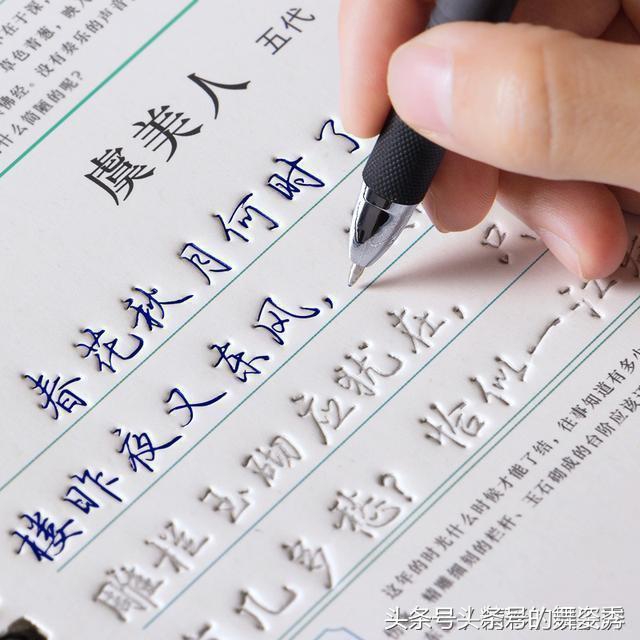 草色青葱，映入
佛经。没有奏乐的声音
什么简陋的呢？
虞美人 五代
春花秋月何时了
楼昨夜又东风，
雕栏玉砌应犹在，只
几多愁？恰似一江
这年的时光什么时候才能了结，往事知道有多少
精雕细刻的栏杆、玉石砌成的台阶应该还
头条号